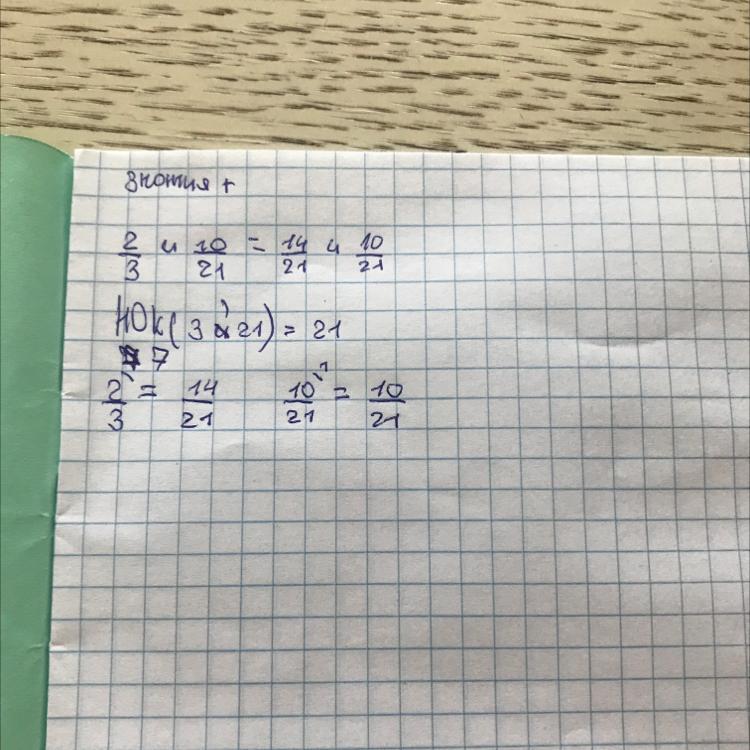 Знония +
2/3 и 10/21 = 14/21 и 10/21
НОК(3, 21) = 21
2/3 ⁷ = 14/21 10/21 ¹ = 10/21